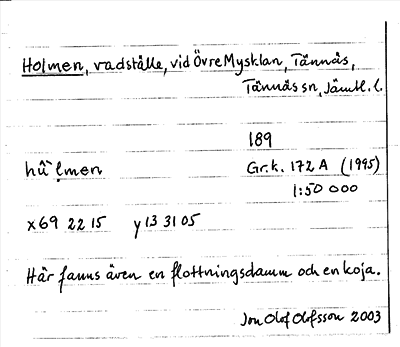 Holmen, vadställe, vid Övre Mysklan, Tännäs,
Tännäs sn, Jämtl. l.
189
hû`lmen Gr.k. 172 A (1995)
1:50 000
x 69 22 15 y 13 31 05
Här fanns även en flottningsdamm och en koja.
Jon Olof Olofsson 2003